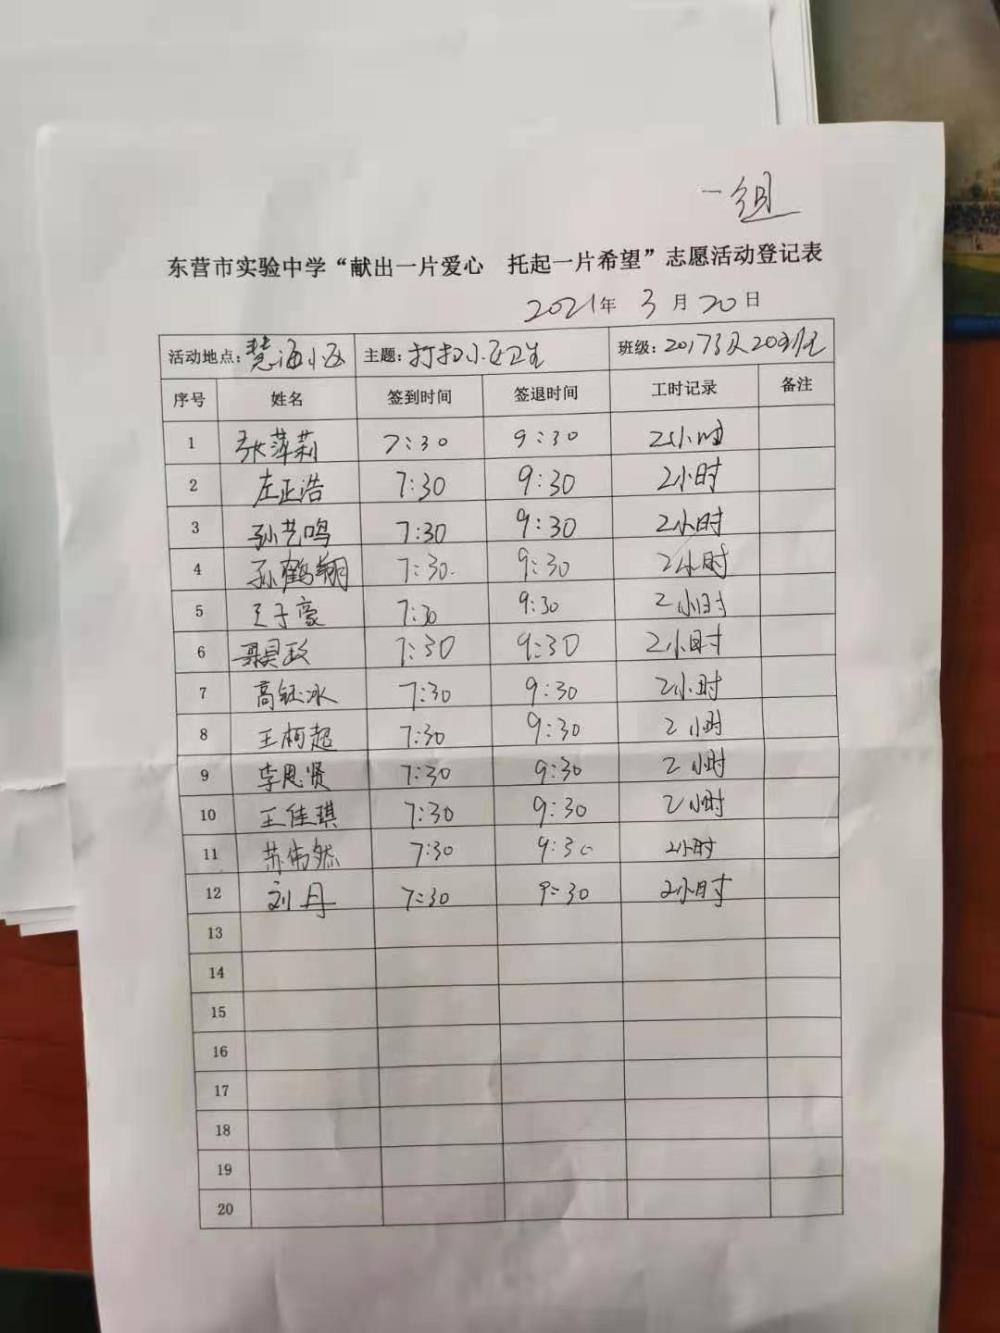 一组
东营市实验中学“献出一片爱心 托起一片希望”志愿活动登记表
2021年 3月20日
活动地点:慧海小区 主题:打扫小区卫生 班级:2017级203班
序号 姓名 签到时间 签退时间 工时记录 备注
1 张萍莉 7:30 9:30 2小时
2 左正浩 7:30 9:30 2小时
3 孙艺鸣 7:30 9:30 2小时
4 孙鹤翔 7:30 9:30 2小时
5 王子豪 7:30 9:30 2小时
6 7:30 9:30 2小时
7 高钰冰 7:30 9:30 2小时
8 王柯超 7:30 9:30 2小时
9 李思贤 7:30 9:30 2小时
10 王佳琪 7:30 9:30 2小时
11 苏伟然 7:30 9:30 2小时
12 刘丹 7:30 9:30 2小时
13
14
15
16
17
18
19
20